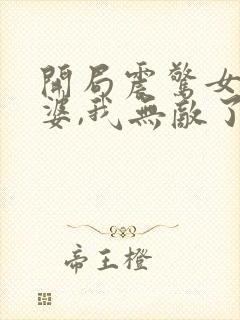 開局震驚女
婆,我無敵了
帝王橙